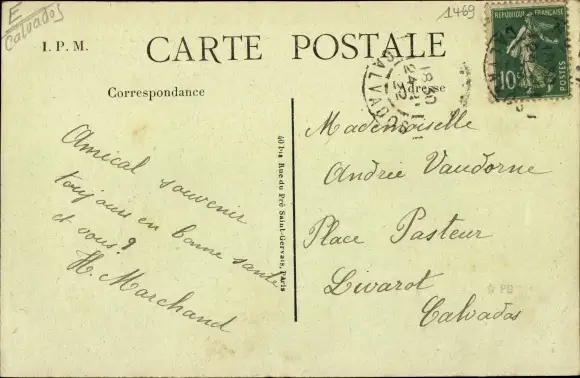 E
Calvados
1469
I. P. M.
CARTE POSTALE
RÉPUBLIQUE FRANÇAISE
10c
POSTES
Correspondance
Adresse
CALVADOS
18 30
24
22
Amical souvenir
toujours en bonne santé
et vous?
H. Marchand
40 bis Rue du Pré Saint-Gervais, Paris
Mademoiselle
Andrée Vaudorne
Place Pasteur
Livarot
Calvados
PB